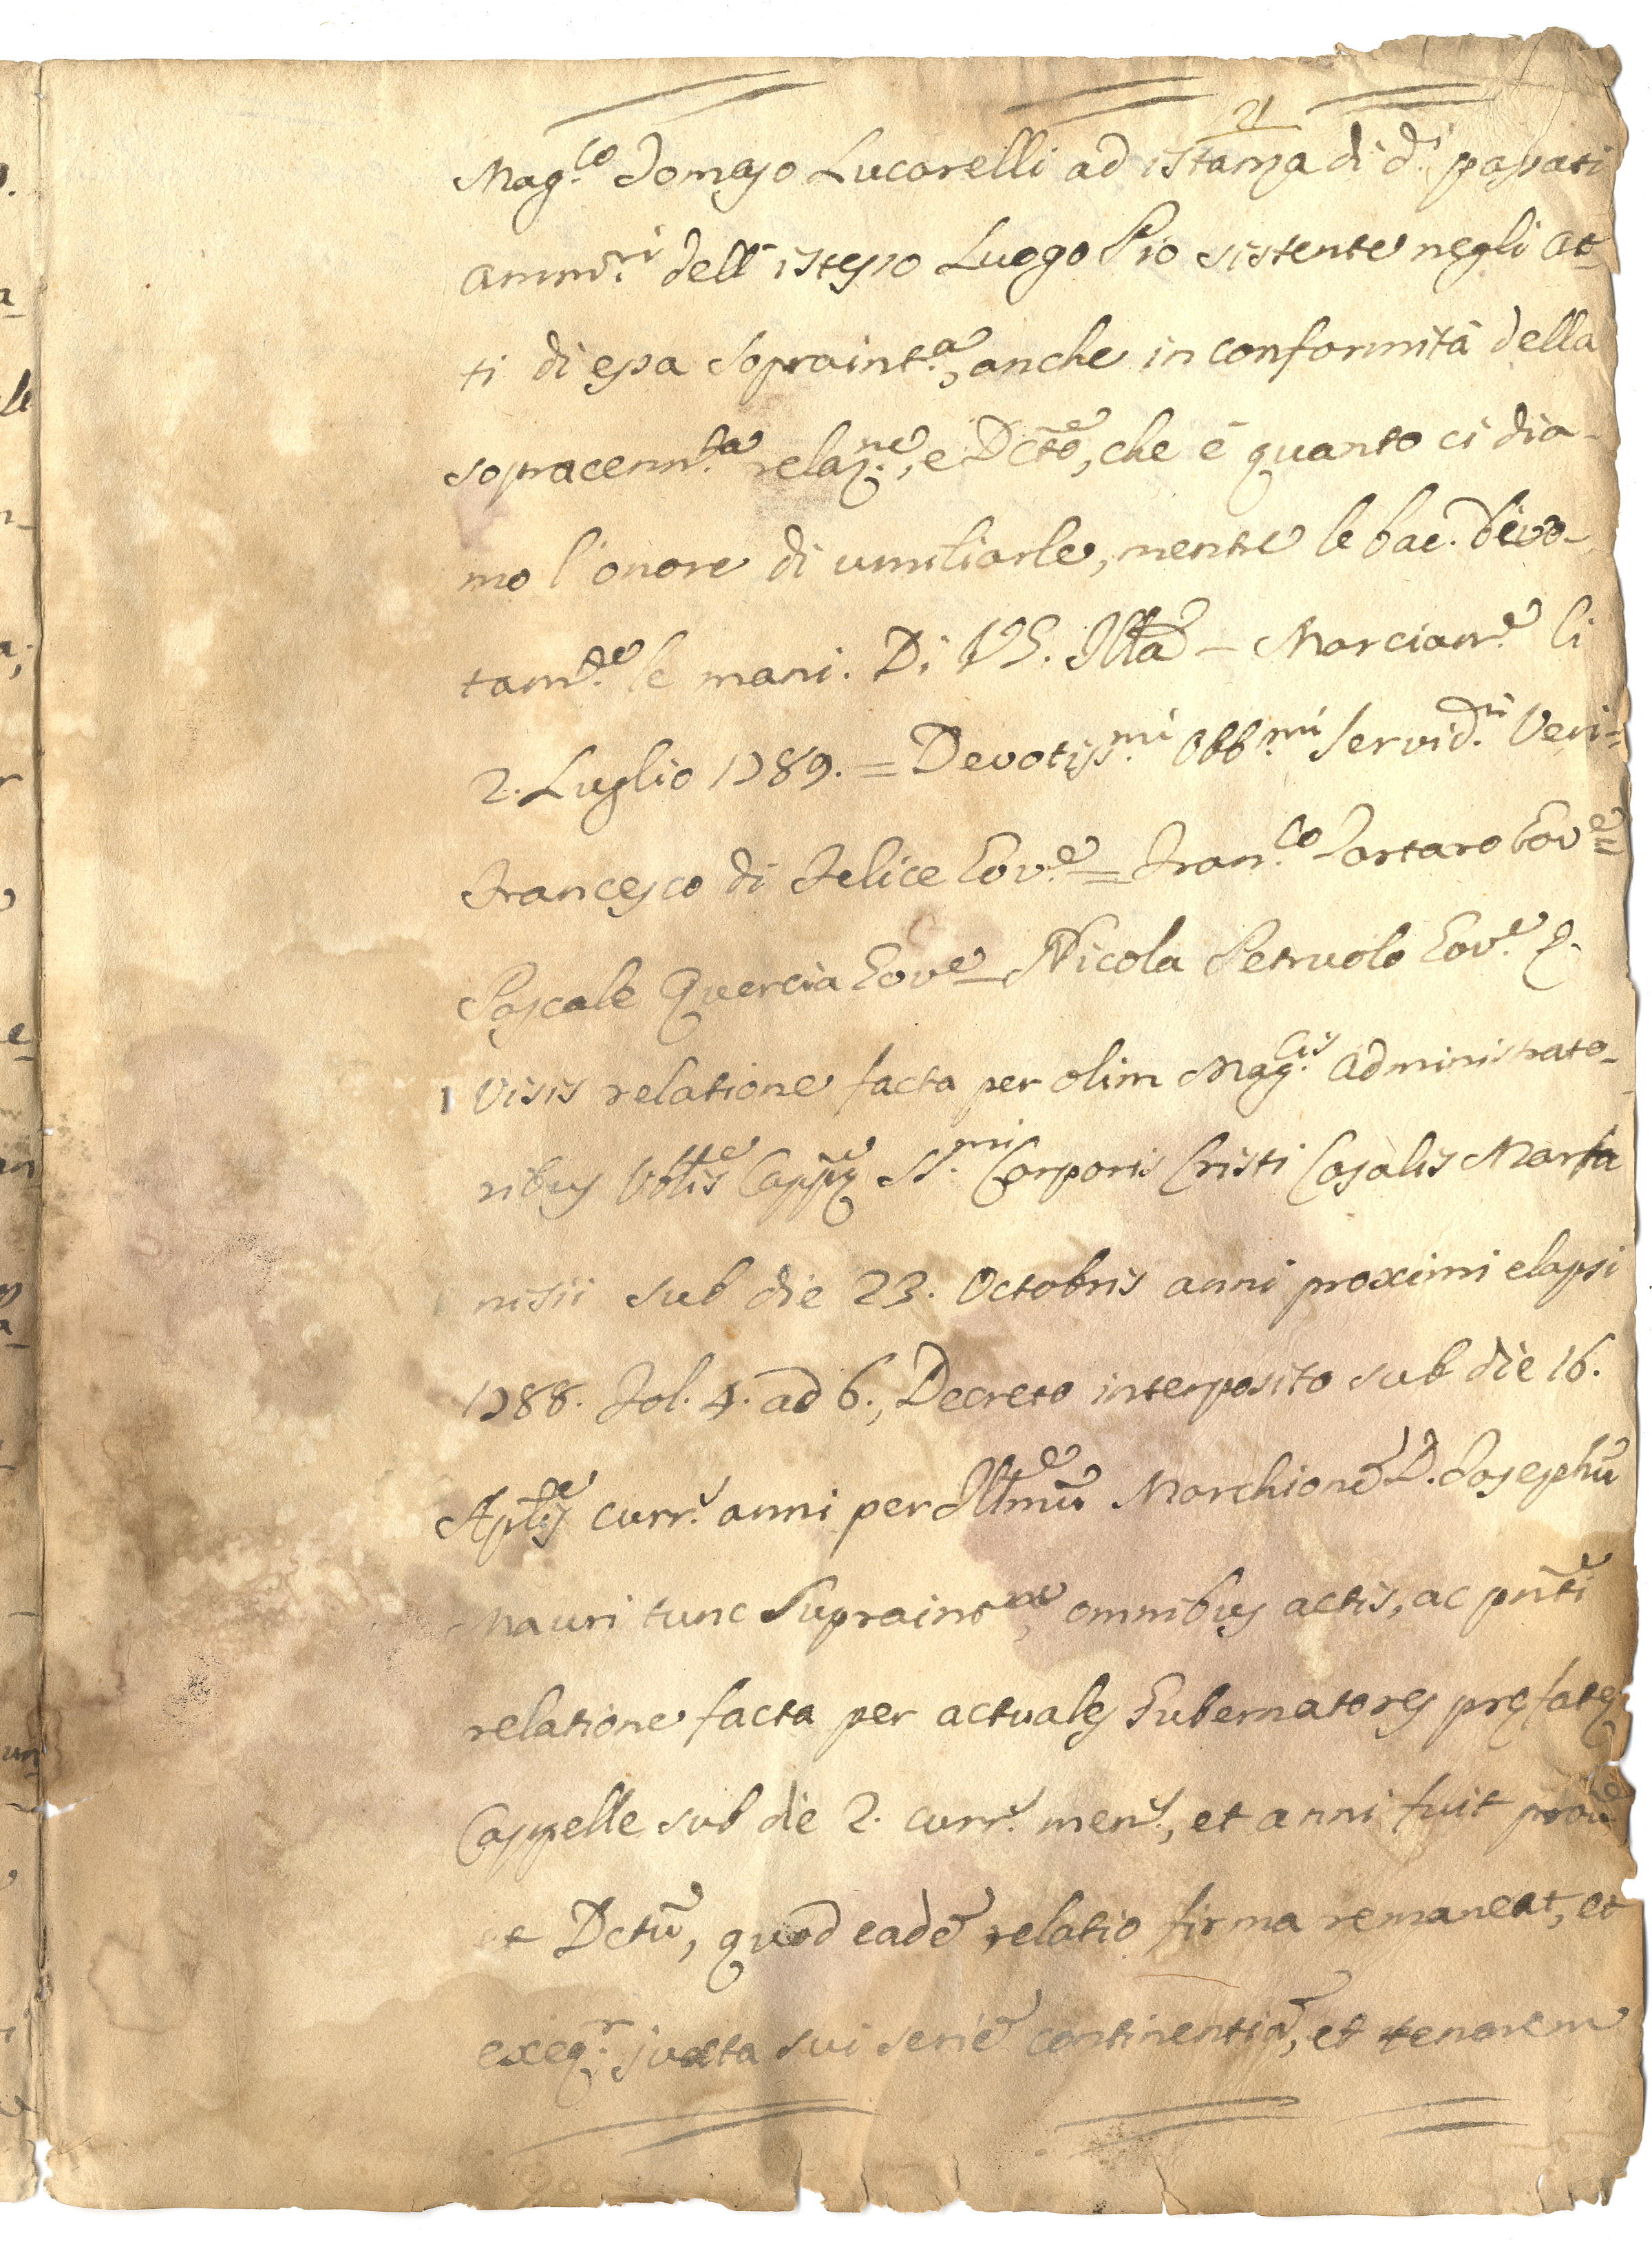 21
Mag.co Tomaso Lucarelli ad istanza di d.i passati
amm.ri dell' istesso Luogo Pio sistente negli at-
ti di essa Sopraint.a, anche in conformità della
sopracenn.ta relaz.ne, e Dcto, che è quanto ci dia-
mo l'onore di umiliarle, mentre le bac. devo-
tam.te le mani. Di VS. Illma - Marcian.e li
2. Luglio 1789. = Devotiss.mi Obb.mi Servid.ri Veri =
Francesco di Felice Gov.e = Fran.co Tartaro Gov.e =
Pascale Quercia Gov.e = Nicola Petruolo Gov.e
Visis relatione facta per olim Mag.cis Administrato-
ribus Vblis Cappę SS.mi Corporis Cristi Casalis Marta
nisii sub die 23. Octobris anni proximi elapsi
1788. Fol. 4. ad 6., Decreto interposito sub die 16.
Aplis curr.s anni per Illmũ Marchionẽ D. Josephũ
Mauri tunc Supraint.ne, omnibus actis, ac pñti
relatione facta per actuales Gubernatores pręfatę
Cappelle sub die 2. curr.s men.s, et anni fuit
et Dctũ, quod eadẽ relatio firma remaneat, et
exeq.r juxta sui seriẽ continentiã, et tenorem